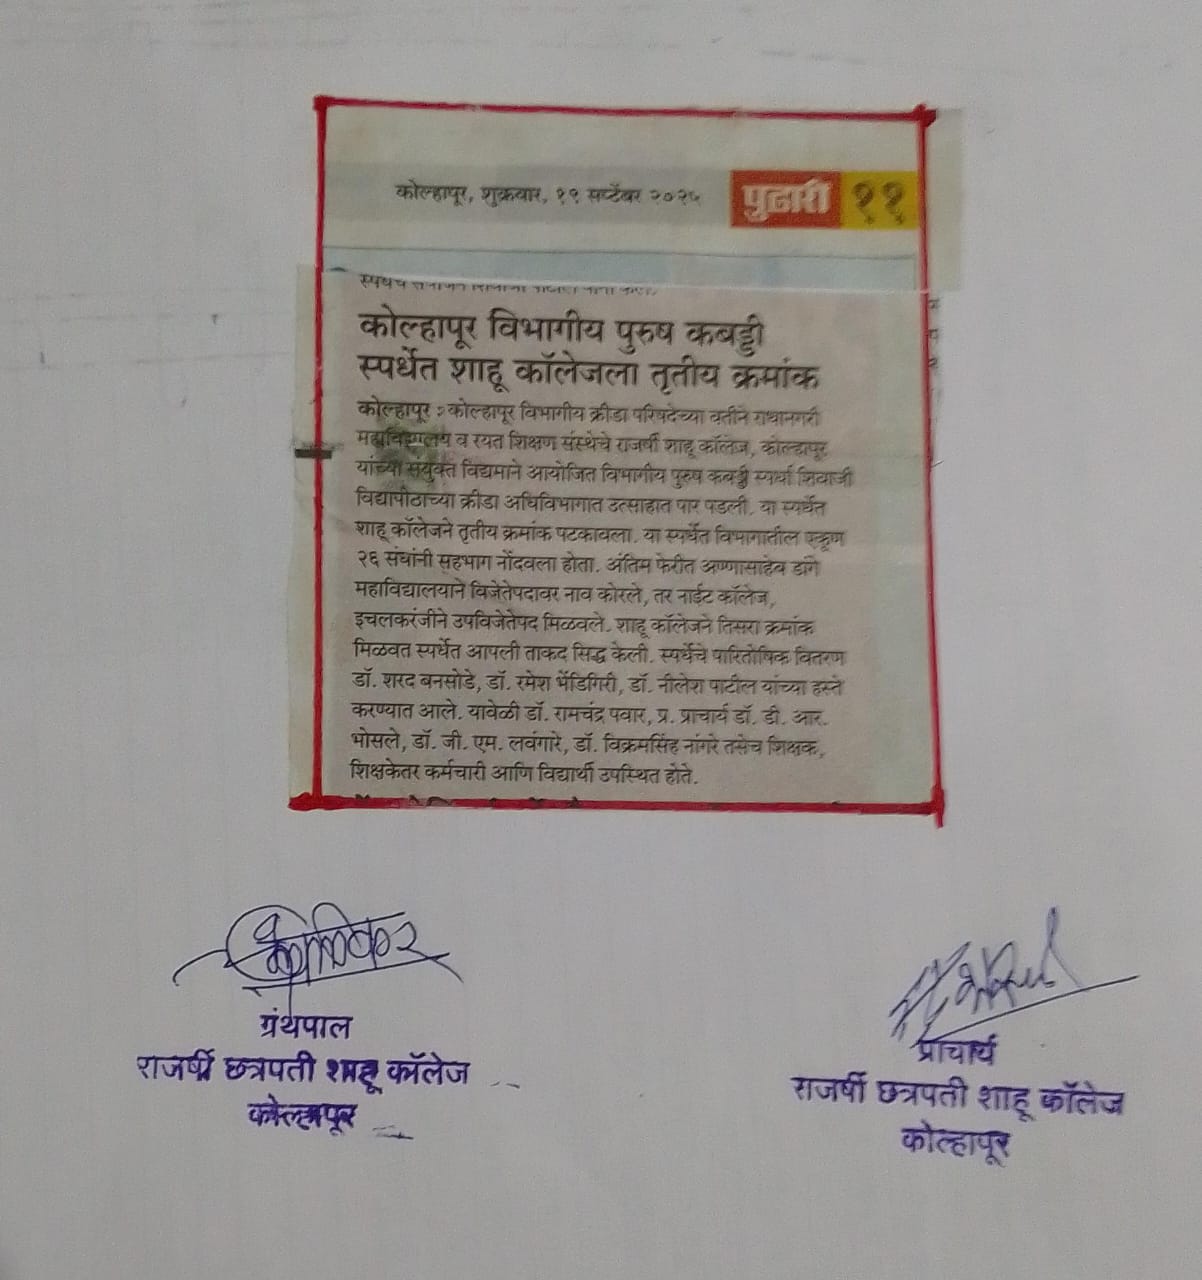 कोल्हापूर, शुक्रवार, १९ सप्टेंबर २०२५ पुढारी ११
कोल्हापूर विभागीय पुरुष कबड्डी
स्पर्धेत शाहू कॉलेजला तृतीय क्रमांक
कोल्हापूर : कोल्हापूर विभागीय क्रीडा परिषदेच्या वतीने राधानगरी
महाविद्यालय व रयत शिक्षण संस्थेचे राजर्षी शाहू कॉलेज, कोल्हापूर
यांच्या संयुक्त विद्यमाने आयोजित विभागीय पुरुष कबड्डी स्पर्धा शिवाजी
विद्यापीठाच्या क्रीडा अधिविभागात उत्साहात पार पडली. या स्पर्धेत
शाहू कॉलेजने तृतीय क्रमांक पटकावला. या स्पर्धेत विभागातील एकूण
२६ संघांनी सहभाग नोंदवला होता. अंतिम फेरीत अण्णासाहेब डांगे
महाविद्यालयाने विजेतेपदावर नाव कोरले, तर नाईट कॉलेज,
इचलकरंजीने उपविजेतेपद मिळवले. शाहू कॉलेजने तिसरा क्रमांक
मिळवत स्पर्धेत आपली ताकद सिद्ध केली. स्पर्धेचे पारितोषिक वितरण
डॉ. शरद बनसोडे, डॉ. रमेश भेंडिगिरी, डॉ. नीलेश पाटील यांच्या हस्ते
करण्यात आले. यावेळी डॉ. रामचंद्र पवार, प्र. प्राचार्य डॉ. डी. आर.
भोसले, डॉ. जी. एम. लवंगारे, डॉ. विक्रमसिंह नांगरे तसेच शिक्षक,
शिक्षकेतर कर्मचारी आणि विद्यार्थी उपस्थित होते.
ग्रंथपाल
राजर्षी छत्रपती शाहू कॉलेज
कोल्हापूर
प्राचार्य
राजर्षी छत्रपती शाहू कॉलेज
कोल्हापूर